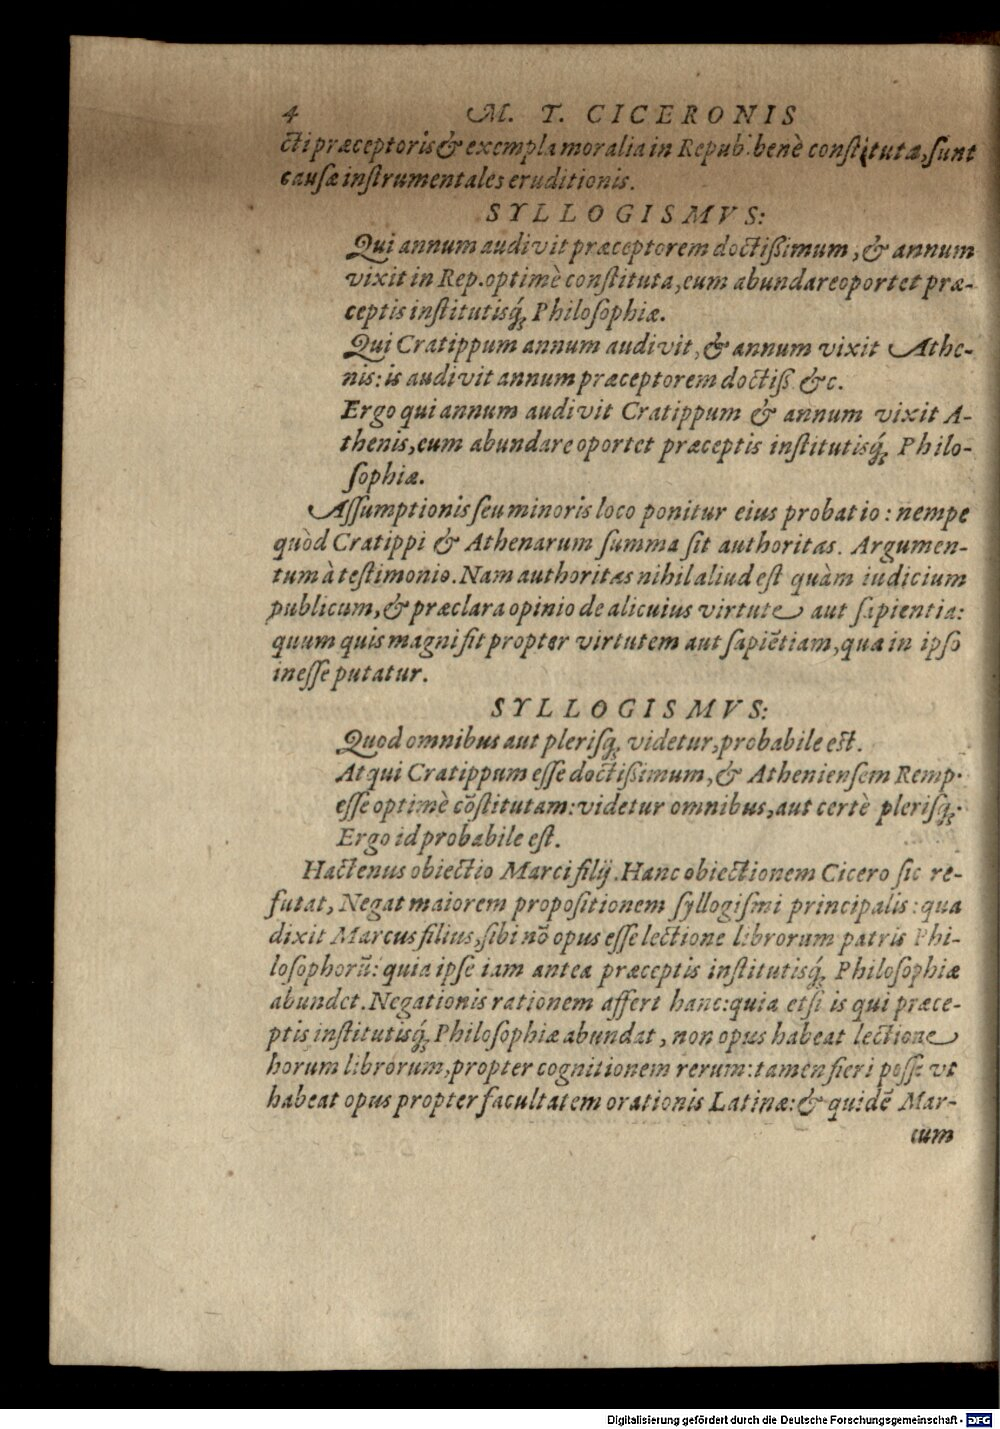 4 M. T. CICERONIS
cti præceptoris & exempla moralia in Repub. benè constitutæ, sunt
causæ instrumentales eruditionis.
SYLLOGISMVS:
Qui annum audivit præceptorem doctißimum, & annum
vixit in Rep. optimè constituta, eum abundare oportet præ-
ceptis institutisq́; Philosophiæ.
Qui Cratippum annum audivit, & annum vixit Athe-
nis: is audivit annum præceptorem doctiß. &c.
Ergo qui annum audivit Cratippum & annum vixit A-
thenis, eum abundare oportet præceptis institutisq́; Philo-
sophiæ.
Assumptionis seu minoris loco ponitur eius probatio: nempe
quòd Cratippi & Athenarum summa sit authoritas. Argumen-
tum à testimonio. Nam authoritas nihil aliud est quàm iudicium
publicum, & præclara opinio de alicuius virtute aut sapientia:
quum quis magni fit propter virtutem aut sapiẽtiam, qua in ipso
inesse putatur.
SYLLOGISMVS:
Quod omnibus aut plerisq; videtur, probabile est.
Atqui Cratippum esse doctißimum, & Atheniensem Remp.
esse optimè cõstitutam: videtur omnibus, aut certè plerisq;.
Ergo id probabile est.
Hactenus obiectio Marci filij. Hanc obiectionem Cicero sic re-
futat, Negat maiorem propositionem syllogismi principalis: qua
dixit Marcus filius, sibi nõ opus esse lectione librorum patris Phi-
losophorũ: quia ipse iam antea præceptis institutisq́; Philosophiæ
abundet. Negationis rationem affert hanc: quia etsi is qui præce-
ptis institutisq́; Philosophiæ abundat, non opus habeat lectione
horum librorum, propter cognitionem rerum: tamen fieri posse vt
habeat opus propter facultatem orationis Latinæ: & quidẽ Mar-
cum
Digitalisierung gefördert durch die Deutsche Forschungsgemeinschaft - DFG